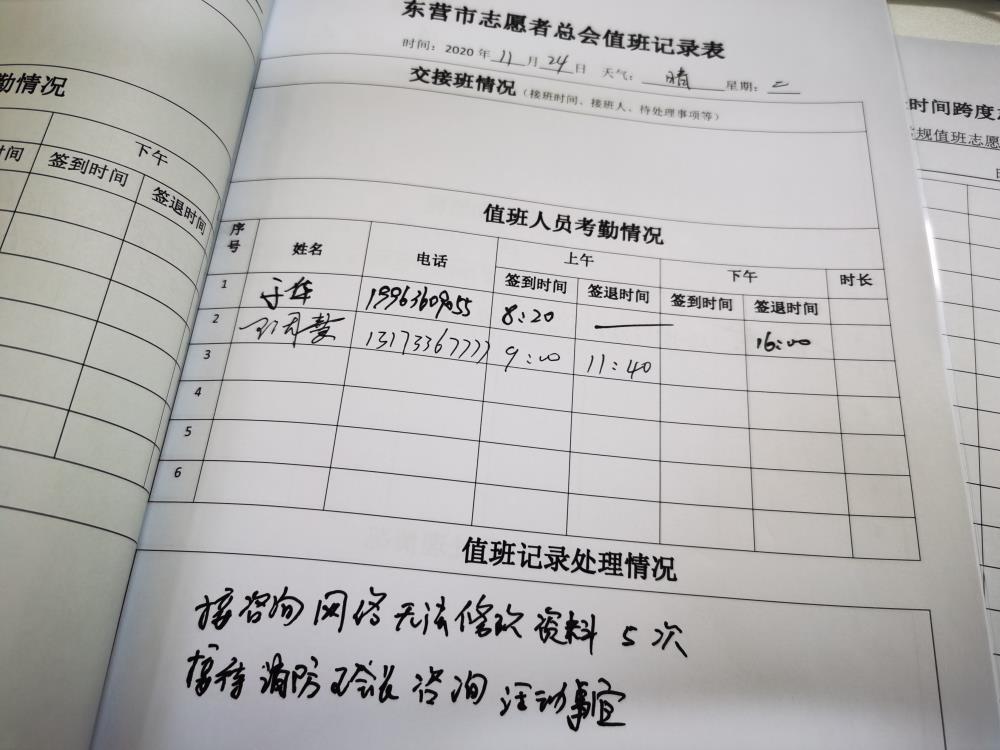 东营市志愿者总会值班记录表
时间：2020年11月24日 天气：晴 星期：二
交接班情况（接班时间、接班人、待处理事项等）
值班人员考勤情况
序号 姓名 电话 上午 下午 时长
签到时间 签退时间 签到时间 签退时间
1 于华 19963609055 8:20 — 16:00
2 13173367777 9:00 11:40
3
4
5
6
值班记录处理情况
接咨询网络无法修改资料 5次
接待消防王会长咨询活动事宜
勤情况
下午
时间 签到时间 签退时间
时间跨度
规值班志愿